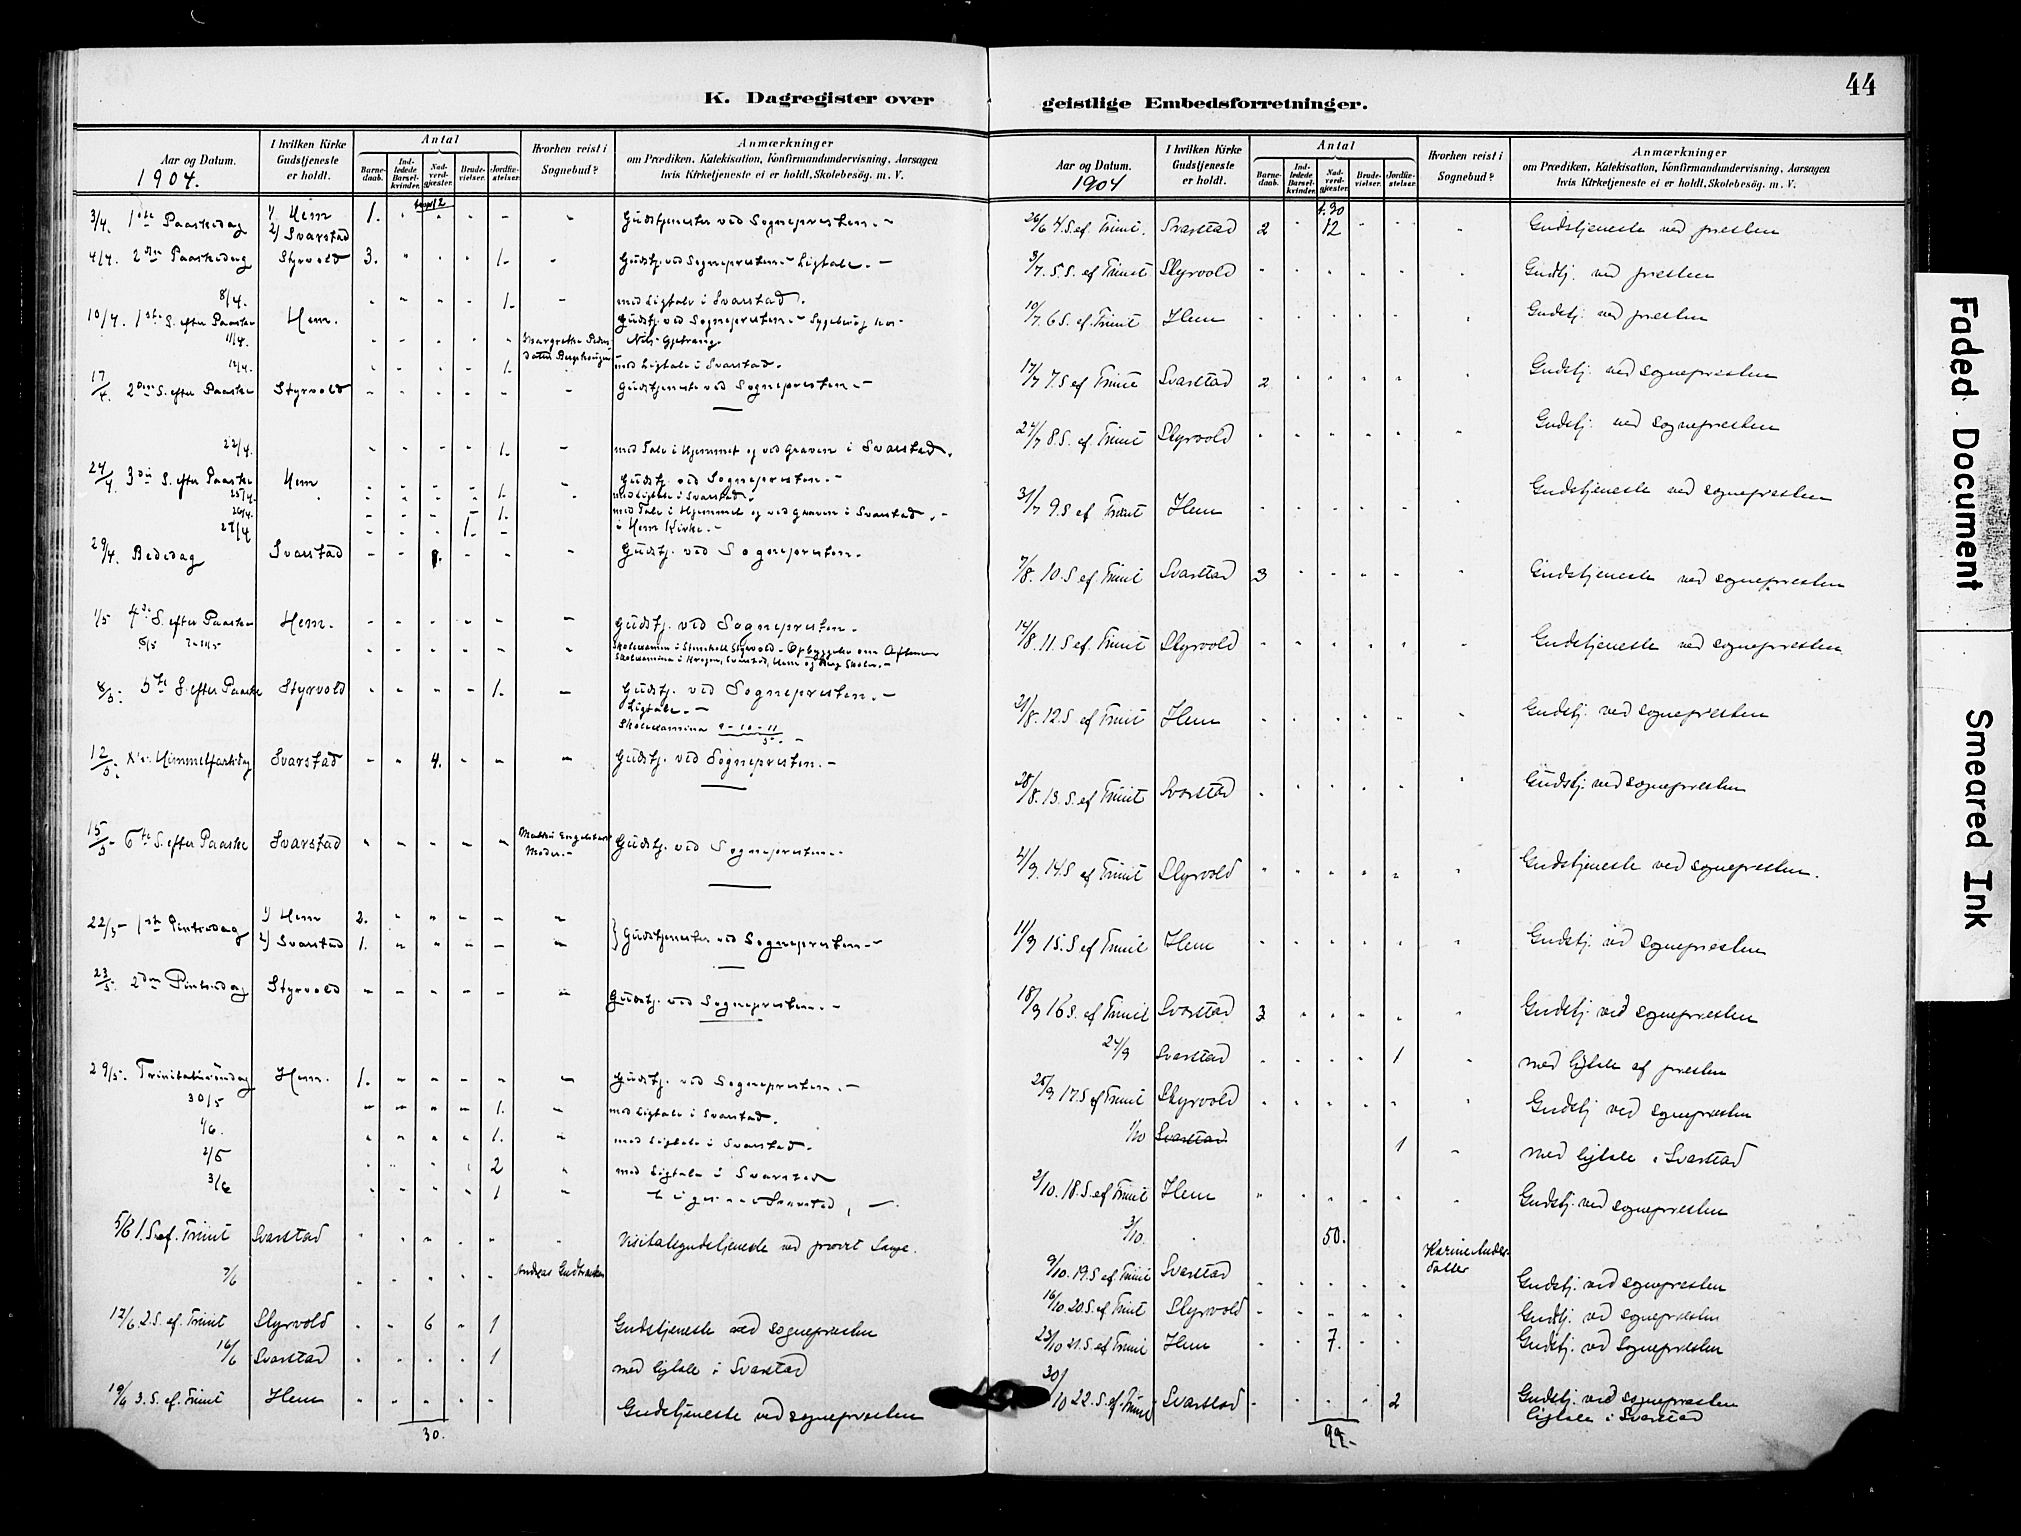 44
K. Dagregister over geistlige Embedsforretninger.
Aar og Datum.
1904.
I hvilken Kirke Gudstjeneste er holdt.
Antal
Barnedaab.
Indledede Barselkvinder.
Nadverdgjester.
Brudevielser.
Jordfæstelser.
Hvorhen reist i Sognebud?
Anmærkninger
om Prædiken, Katekisation, Konfirmandundervisning, Aarsagen
hvis Kirketjeneste ei er holdt, Skolebesög. m. V.
12
3/4. 1ste Paaskedag 1) Hem 1. " " - - " Gudstjenester ved Sognepresten. -
2) Svarstad
4/4. 2den Paaskedag Styrvold 3. " " - 1. - Gudstj. ved Sognepresten - Ligtale. -
8/4. " " - - 1. - med Ligtale i Svarstad.
10/4. 1ste S. efter Paaske Hem. Gudstj. ved Sognepresten. - Sygebesøg hos
11/4. " - - " - Margrethe Peders-
datter
12/4. - - - - 1. - med Ligtale i Svarstad.
17/4. 2den S. efter Paaske Styrvold - - - - - " Gudstjeneste ved Sognepresten -
22/4. - - - - 1. - med Tale i Hjemmet og ved Graven i Svarstad.
24/4. 3die S. efter Paaske Hem - - - - - Gudstj. ved Sognepresten. -
25/4. " " " - 1. " med Ligtale i Svarstad.
26/4. - - - - 1. med Tale i Hjemmet og ved Graven i Svarstad. -
27/4 - - - 1. - i Hem Kirke. -
29/4. Bededag Svarstad - - 8. - - " Gudstj. ved Sognepresten.
1/5 4de S. efter Paaske Hem. - - - - - - Gudstj. ved Sognepresten.
Styrvold - Opbyggelse om Aftenen
Skoleexamina i Svarstad, Hem og Berg Skoler. -
8/5. 5te S. efter Paaske Styrvold - - - - 1. - Gudstj. ved Sognepresten. -
Ligtale. -
Skoleexamina 9-10-11/5. -
12/5. Xti Himmelfartsdag Svarstad - - 4. - - - Gudstj. ved Sognepresten. -
15/5 - 6te S. efter Paaske Svarstad " - - - - Moder. - Gudstj. ved Sognepresten. -
22/5 - 1ste Pintsedag 1) Hem 2. - " - - "
2) Svarstad 1. " " - - " } Gudstjenester ved Sognepresten. -
23/5. 2den Pintsedag Styrvold - - - - - " Gudstj. ved Sognepresten. -
29/5. Trinitatissöndag Hem. 1. - - - - - Gudstj. ved Sognepresten. -
30/5 " " " - 1. - med Ligtale i Svarstad.
1/6. " " " " 1. " med Ligtale i Svarstad.
2/6 " " " " 2 " med Ligtale i Svarstad
3/6 " " " " 1 " Svarstad, -
5/6 1. S. ef. Trinit Svarstad " " " " " " Visitatsgudstjeneste ved provst Lange.
7/6 " " " " " Andreas
12/6. 2. S. ef. Trinit Styrvold " " 6 " 1 Gudstjeneste ved sognepresten
16/6 Svarstad " " " " 1 med ligtale i Svarstad
19/6 3. S. ef. Trinit Hem " " " " " Gudstjeneste ved sognepresten
30.
Aar og Datum.
1904
I hvilken Kirke Gudstjeneste er holdt.
Antal
Barnedaab.
Indledede Barselkvinder.
Nadverdgjester.
Brudevielser.
Jordfæstelser.
Hvorhen reist i Sognebud?
Anmærkninger
om Prædiken, Katekisation, Konfirmandundervisning, Aarsagen
hvis Kirketjeneste ei er holdt, Skolebesög. m. V.
t. 30
26/6 4. S. ef. Trinit. Svarstad 2 " 12 " " " Gudstjeneste ved presten
3/7. 5. S. ef Trinit Styrvold " " " " " " Gudstj. ved presten
10/7. 6 S. ef. Trinit Hem " " " " " " Gudstj. ved presten
17/7 7. S ef Trinit Svarstad 2 " " " " " Gudstj. ved sognepresten
24/7 8. S. ef Trinit Styrvold " " " " " " Gudstj. ved sognepresten
31/7 9. S ef Trinit Hem " " " " " " Gudstjeneste ved sognepresten
7/8. 10. S ef Trinit Svarstad 3 " " " " " Gudstjeneste ved sognepresten
14/8. 11. S ef Trinit Styrvold " " " " " " Gudstjeneste ved sognepresten
21/8. 12. S ef Trinit Hem " " " " " " Gudstj. ved sognepresten
28/8. 13. S. ef Trinit Svarstad " " " " " " Gudstj. ved sognepresten
4/9. 14. S ef Trinit Styrvold " " " " " " Gudstjeneste ved sognepresten.
11/9 15. S ef Trinit Hem " " " " " " Gudstj. ved sognepresten
18/9 16 S. ef Trinit Svarstad 3 " " " " " Gudstj. ved sognepresten
24/9 Svarstad " " " " 1 " med ligtale af presten
25/9 17. S ef Trinit Styrvold " " " " " " Gudstj ved sognepresten
1/10 Svarstad 1 " med ligtale i Svarstad
2/10. 18. S. ef Trinit Hem " " " " " " Gudstj. ved sognepresten
3/10. " 50.
9/10. 19. S ef Trinit Svarstad " " " " " Karine Anders-
datter Gudstj. ved sognepresten
16/10. 20. S. ef Trinit Styrvold " " " " " Gudstj. ved sognepresten
23/10 21. S. ef Trinit Hem " " 7. " " Gudstj. ved Sognepresten
30/10 22. S. ef. Trinit Svarstad " " " " 2 Gudstj. ved sognepresten
ligtale i Svarstad
99.-
Faded Document
Smeared Ink